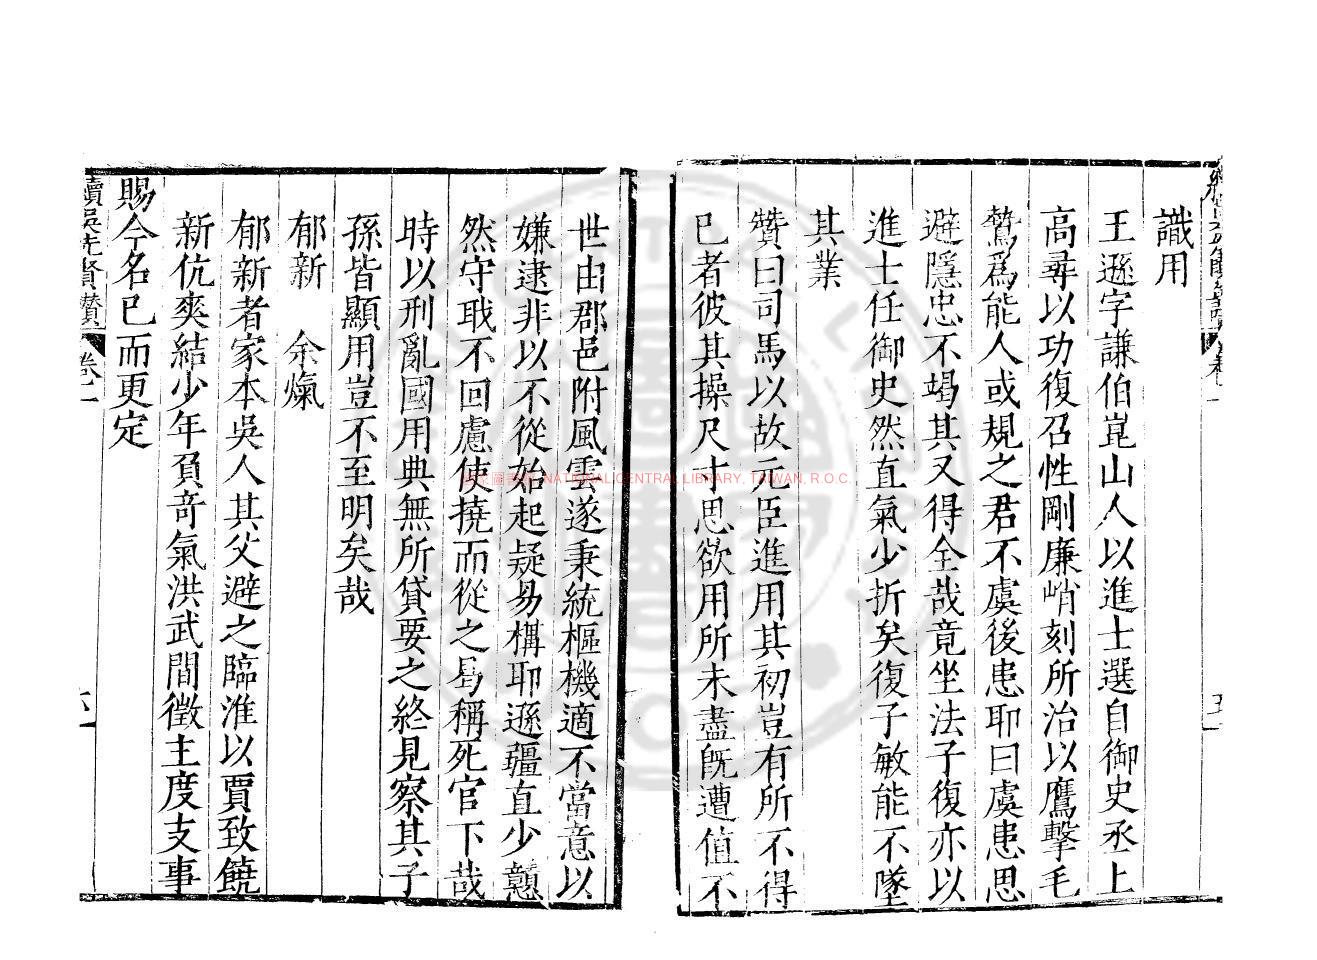 識用
王遜字謙伯崑山人以進士選自御史丞上
高尋以功復召性剛廉峭刻所治以鷹擊毛
鷙爲能人或規之君不虞後患耶曰虞患思
避隱忠不竭其又得全哉竟坐法子復亦以
進士任御史然直氣少折矣復子敏能不墜
其業
贊曰司馬以故元臣進用其初豈有所不得
已者彼其操尺寸思欲用所未盡旣遭值不
世由郡邑附風雲遂秉統樞機適不當意以
嫌逮非以不從始起疑易構耶遜疆直少戇
然守職不回慮使撓而從之曷稱死官下哉
時以刑亂國用典無所貸要之終見察其子
孫皆顯用豈不至明矣哉
郁新 余熂
郁新者家本吳人其父避之臨淮以賈致饒
新伉爽結少年負竒氣洪武間徵主度支事
賜今名已而更定
續吳先賢讃 卷二
NATIONAL CENTRAL LIBRARY, TAIWAN, R.O.C.